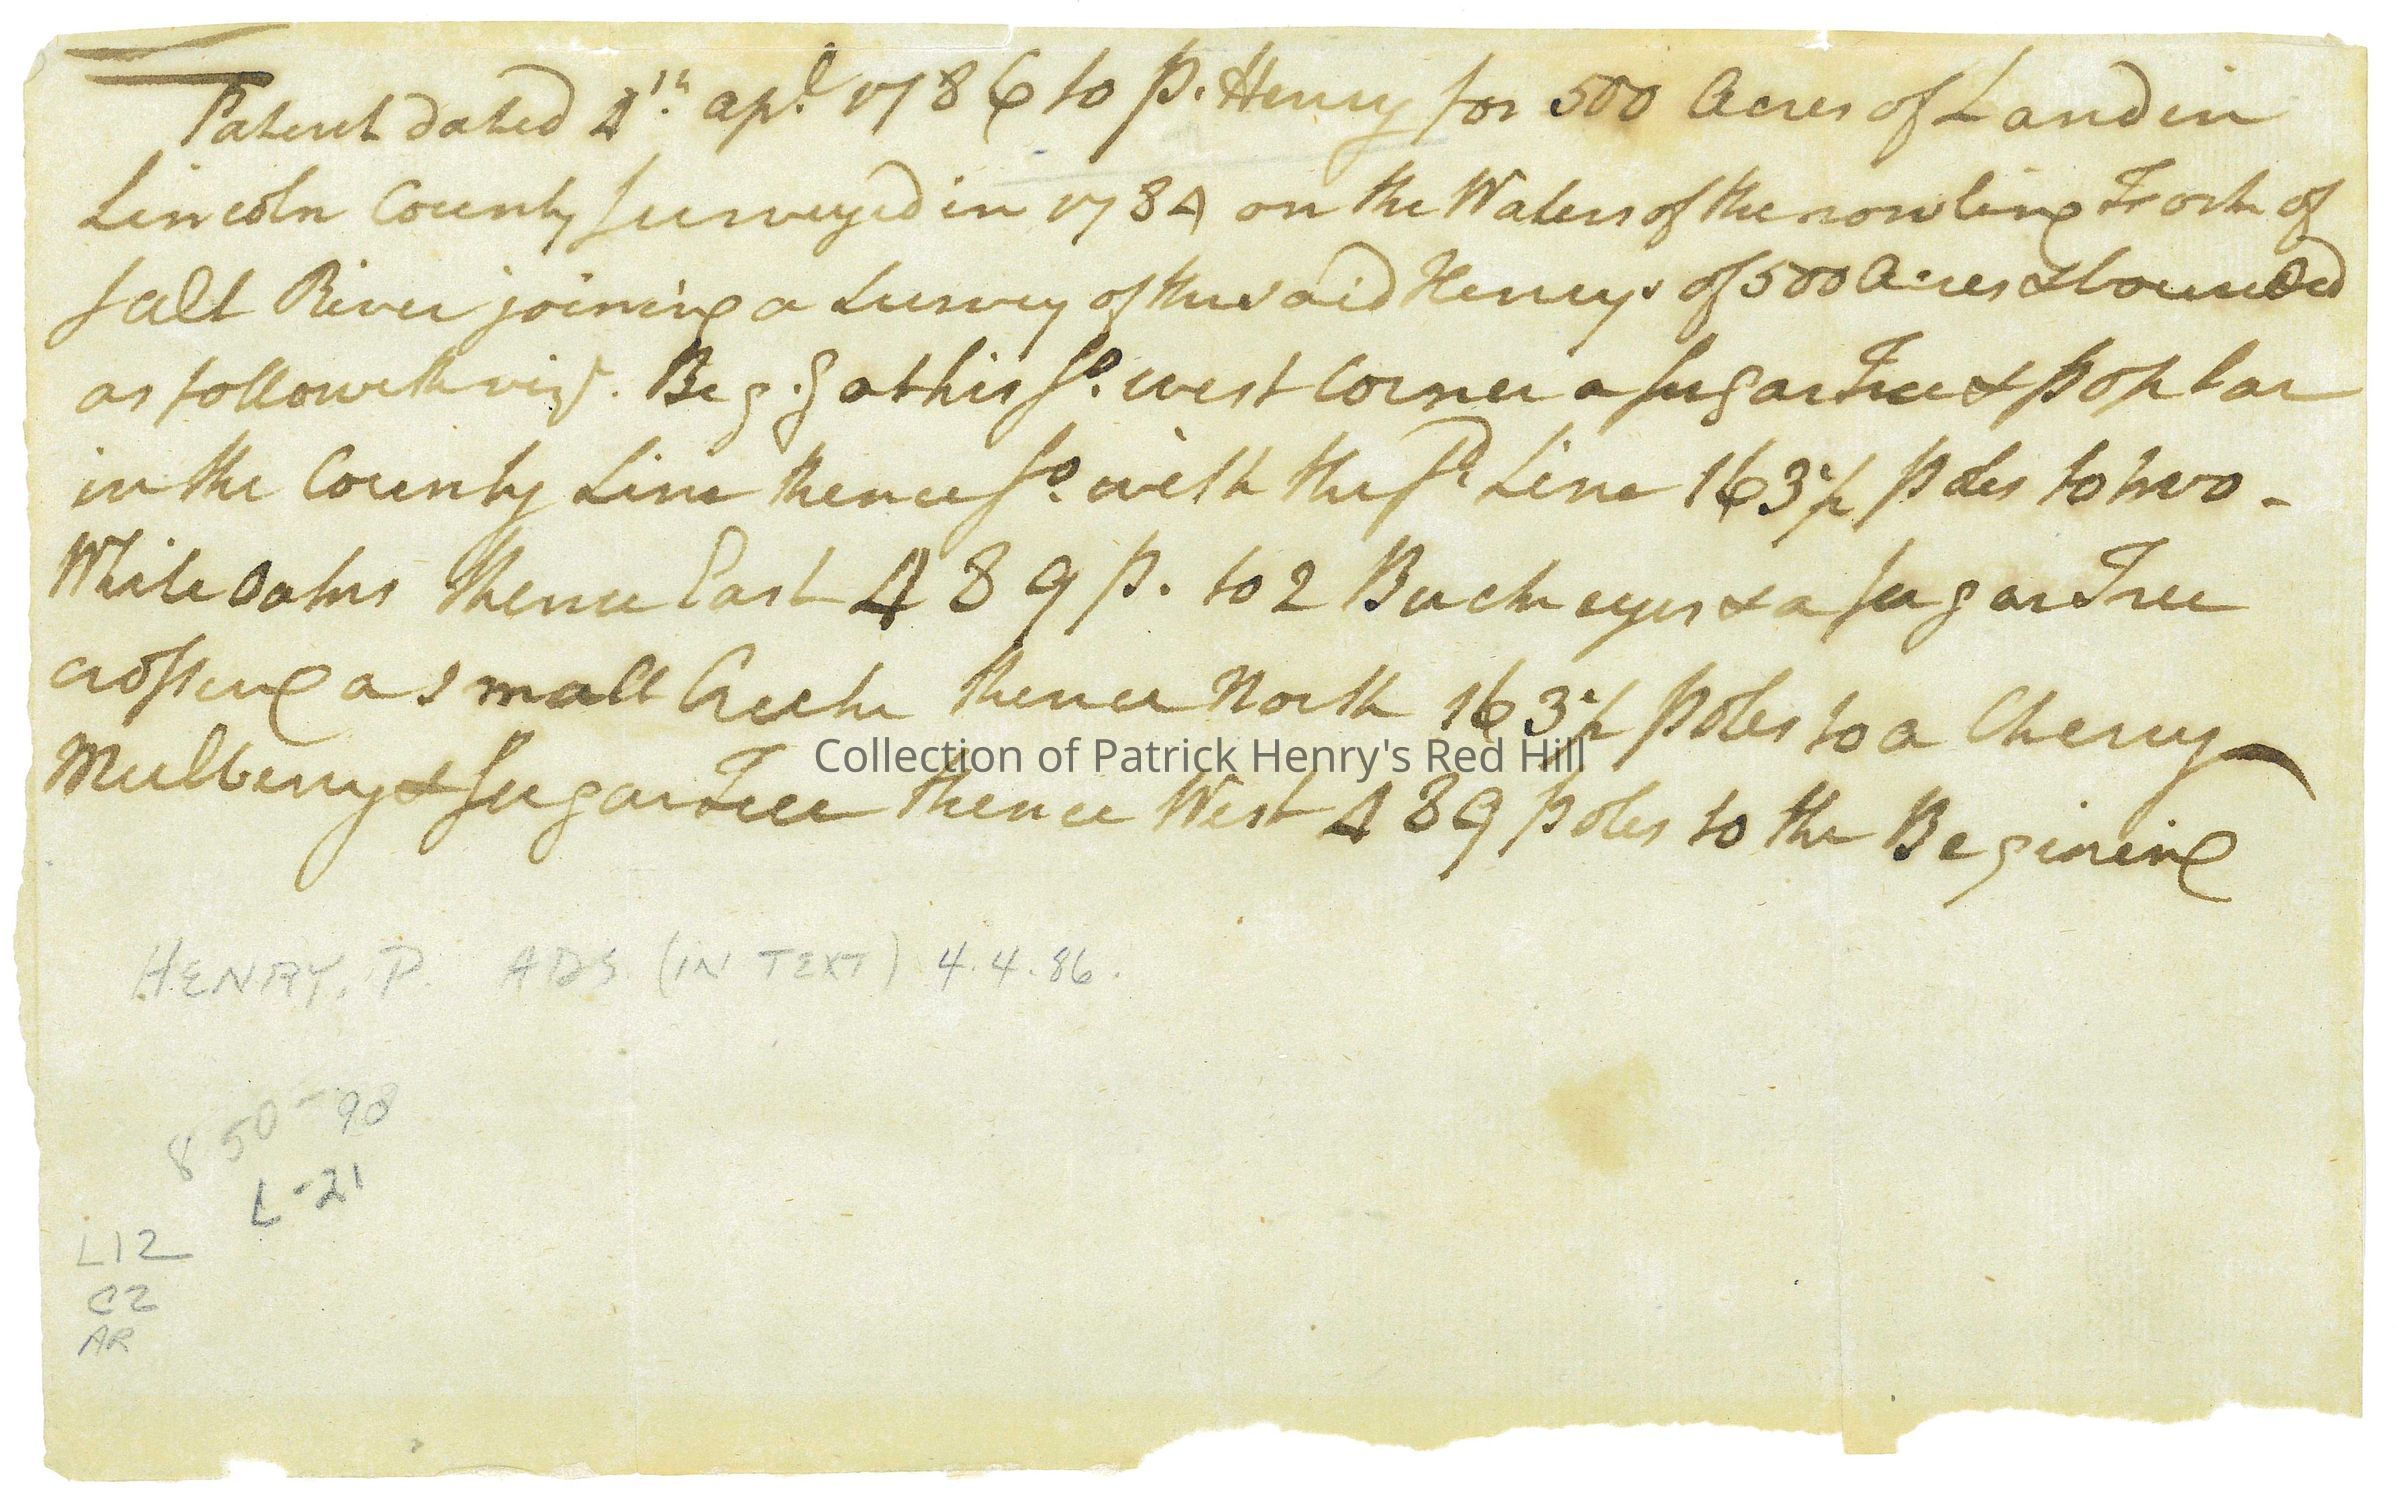 Patent dated 4th. apl. 1786 to P. Henry for 500 Acres of Land in
Lincoln County surveyed in 1784 on the Waters of the rowling Fork of
salt River joining a survey of the said Henrys of 500 Acres & bounded
as followeth viz. Beg.g at his So. west corner a sugar Tree & poplar
in the County Line thence So. with the sd. Line 163½ poles to two -
White oaks thence East 489 p. to 2 Buckeyes & a sugar Tree
crossing a small Creek thence North 163½ poles to a Cherry
Mulberry & sugar Tree thence West 489 poles to the Begining
Collection of Patrick Henry's Red Hill
HENRY, P. ADS (IN TEXT) 4.4.86.
850-90
L-21
L12
C2
AR